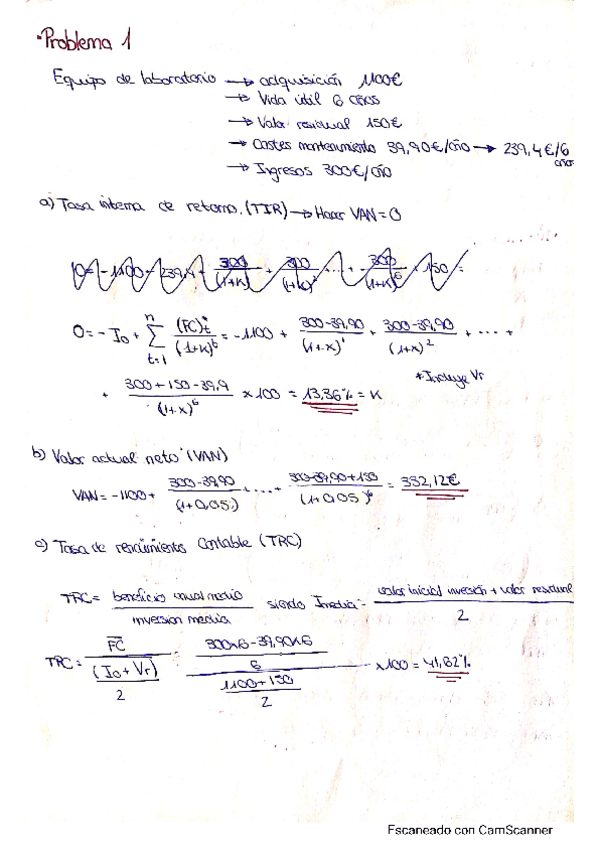 ·Problema 1
Equipo de laboratorio → adquisición 1100€
→ Vida útil 6 años
→ Valor residual 150€
→ Costes mantenimiento 39,90€/año → 239,4€/6 años
→ Ingresos 300€/año
a) Tasa interna de retorno (TIR) → Hacer VAN=0
0= -1100 - 239,4 + 300/(1+k) + 300/(1+k)² ... + 300/(1+k)⁶ + 150/=
0 = - I₀ + Σ (n, t=1) (FC)t*/(1+k)^t = -1100 + 300-39,90/(1+x)¹ + 300-39,90/(1+x)² + ... +
+ 300+150-39,9/(1+x)⁶ x100 = 13,36% = K
*Incluye Vr
b) Valor actual neto (VAN)
VAN= -1100+ 300-39,90/(1+0,05) + ... + 300-39,90+150/(1+0,05)⁶ = 332,12€
c) Tasa de rendimiento Contable (TRC)
TRC= beneficio anual medio/inversion media siendo Imedia= valor inicial inversión + valor residual/2
TRC= FC̅/((I₀+Vr)/2) = ((300x6-39,90x6)/6)/((1100+150)/2) x100 = 41,62%
Escaneado con CamScanner